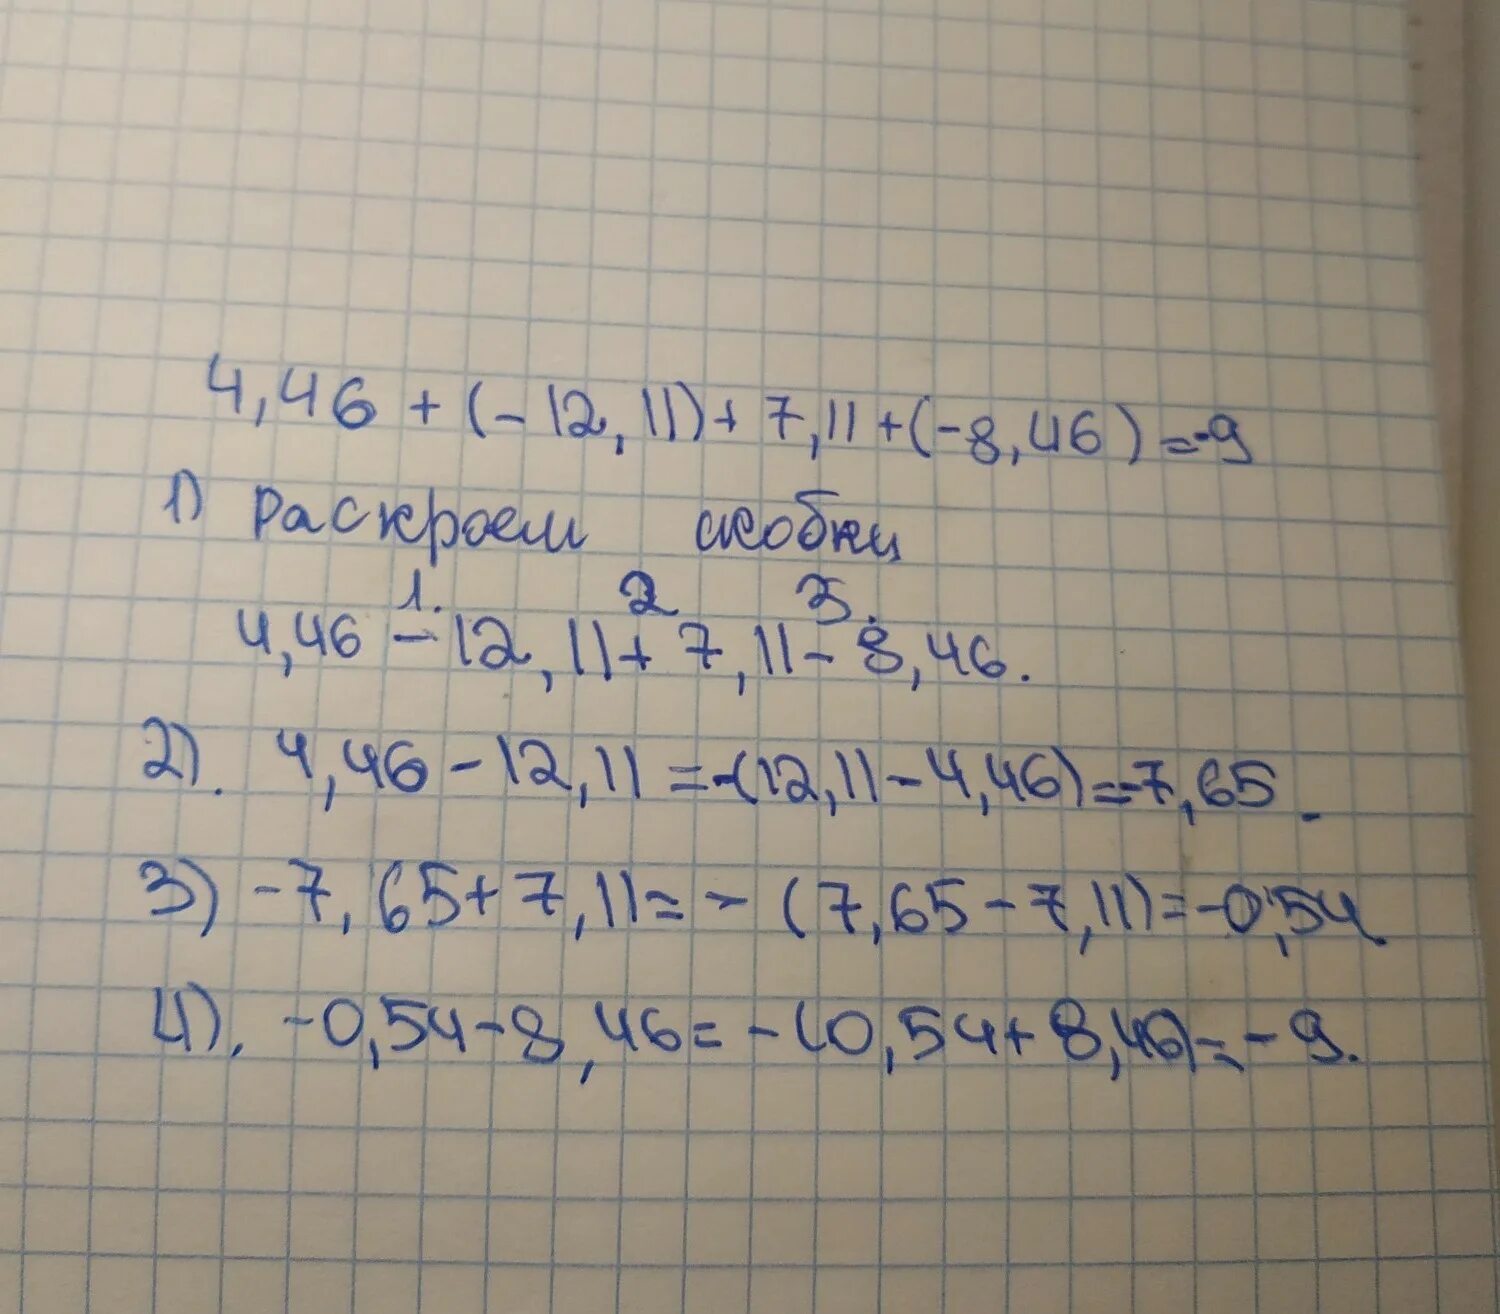 4,46 + (-12,11) + 7,11 + (-8,46) = -9
1) Раскроем скобки
1. 2 3.
4,46 - 12,11 + 7,11 - 8,46.
2). 4,46 - 12,11 = -(12,11 - 4,46) = -7,65.
3) -7,65 + 7,11 = - (7,65 - 7,11) = -0,54
4). -0,54 - 8,46 = -(0,54 + 8,46) = -9.